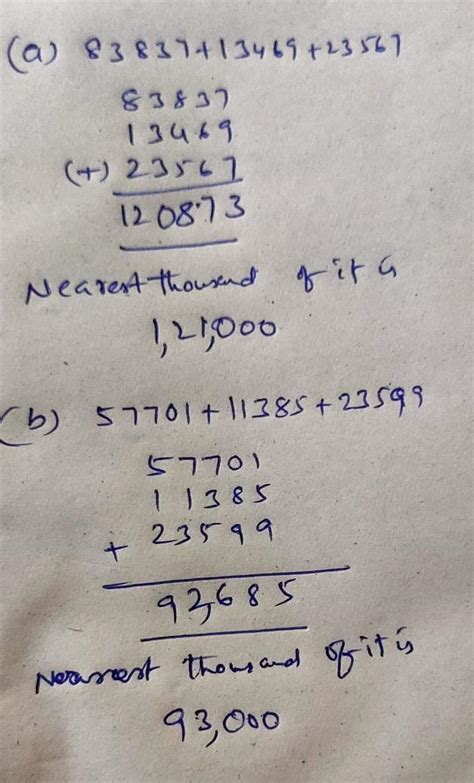 (a) 83837+13469+23567
83837
13469
(+) 23567
120873
Nearest thousand of it is
1,21,000
(b) 57701+11385+23599
57701
11385
+ 23599
92,685
Nearest thousand of it is
93,000